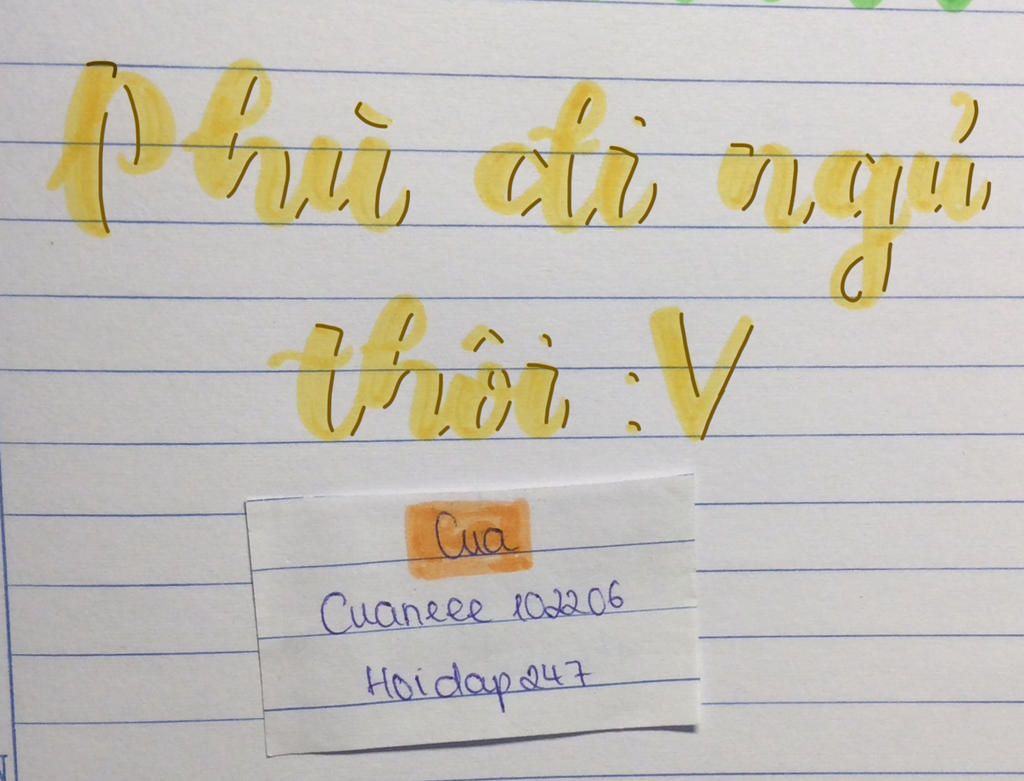 Phù đi ngủ
thôi :V
Cua
Cuaneee 102206
Hoidap247